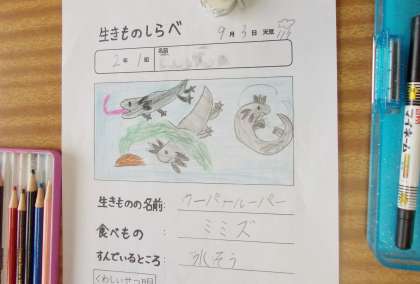 生きものしらべ
9月3日 天気
2年1組 名前
生きものの名前: ウーパールーパー
食べもの : ミミズ
すんでいるところ: 水そう
くわしいせつ明
マイネーム